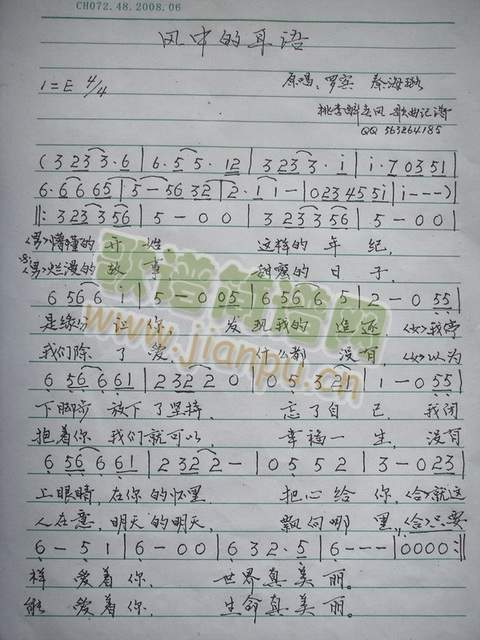 CH072.48.2008.06
风中的耳语
1=E 4/4
原唱: 罗宾 秦海璐
歌曲记谱
QQ 563264185
(3 2 3 3·6 | 6·5 5·12 | 3 2 3 3·i | i·7 0 3 5 1 |
6·6 6 6 5 | 5 – 5 6 3 2 | 2·1 1 – | 0 2 3 4 5 5 i | i – – –)
‖: 3 2 3 3 5 6 | 5 – 0 0 | 3 2 3 3 5 6 | 5 – 0 0 |
<男>懵懂的 这样的 年纪,
<男>烂漫的故事 甜蜜的 日子,
歌谱简谱网
www.jianpu.cn
6 5 6 6 i | 5 – 0 0 5 | 6 5 6 6 5 | 2 – 0 5 5 |
是缘分 让你 发现我的 追逐 <女>我停
我们除 了 爱 什么都 没有, <女>以为
6 5 6 6 6 1 | 2 3 2 2 0 | 0 5 3 2 1 | 1 – 0 5 5 |
下脚步 放下了坚持, 忘了自 己, 我闭
抱着你 我们就可以, 幸福一 生, 没有
6 5 6 6 6 1 | 2 3 2 2 – | 0 5 5 2 | 3 – 0 2 3 |
上眼睛, 在你的怀里 把心给 你, <合>就这
人在意, 明天的明天, 飘向哪 里, <合>只要
6 – 5 1 | 6 – 0 0 | 6 3 2·5 | 6 – – – | 0 0 0 0 :‖
样 爱着你, 世界真美 丽。
能 爱着你, 生命真美 丽。